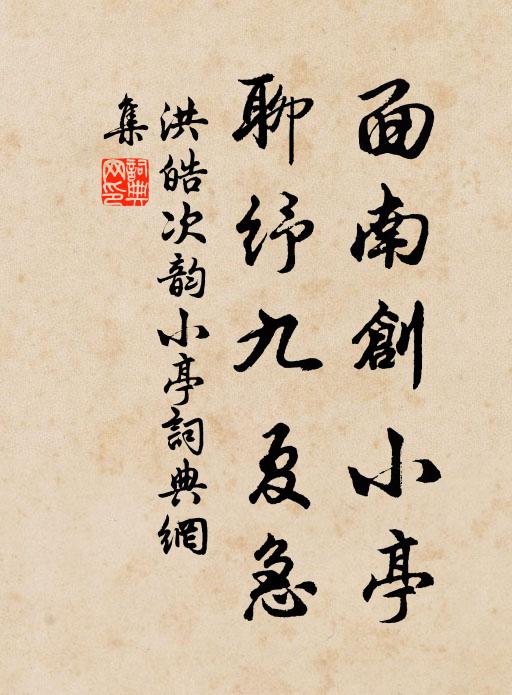 面南創小亭
聊紓九夏急
洪皓次韵小亭詞典網
集
詞典
网印